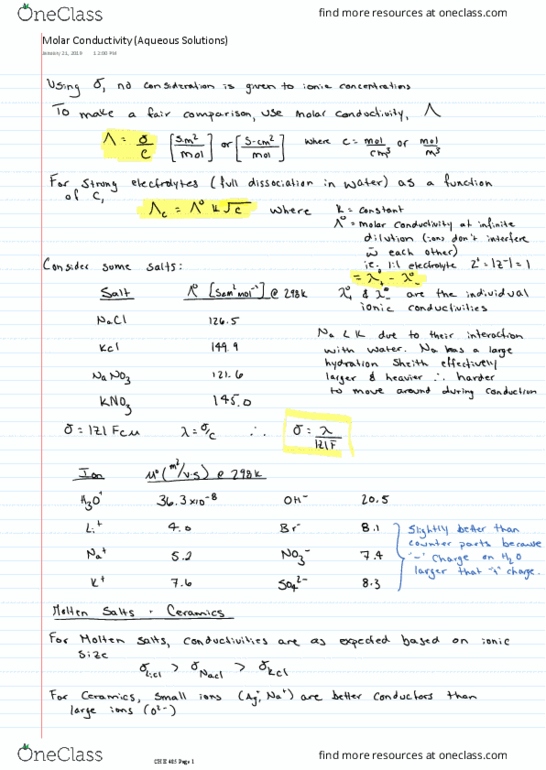 OneClass
find more resources at oneclass.com
Molar Conductivity (Aqueous Solutions)
January 21, 2019 1:2:00 PM
Using σ, no consideration is given to ionic concentrations
To make a fair comparison, use molar conductivity, Λ
Λ = σ/c [Sm²/mol] or [S·cm²/mol] where c = mol/cm³ or mol/m³
For strong electrolytes (full dissociation in water) as a function
of C,
Λc = Λ° k√c where
k = constant
Λ° = molar conductivity at infinite
dilution (ions don't interfere
w̄ each other)
ie. 1:1 electrolyte Z⁺ = |Z⁻| = 1
= λ°₊ - λ°₋
λ°₊ & λ°₋ are the individual
ionic conductivities
Consider some salts:
Salt Λ° [Scm²mol⁻¹] @ 298K
NaCl 126.5
KCl 149.9
NaNO₃ 121.6
KNO₃ 145.0
Na < K due to their interaction
with water. Na has a large
hydration sheith effectively
larger & heavier ∴ harder
to move around during conduction
σ = |Z|Fcu λ = σ/c ∴ σ = λ/|Z|F
Ion u° (m²/v·s) @ 298K
H₃O⁺ 36.3×10⁻⁸ OH⁻ 20.5
Li⁺ 4.0 Br⁻ 8.1
Na⁺ 5.2 NO₃⁻ 7.4
K⁺ 7.6 SO₄²⁻ 8.3
Slightly better than
counter parts because
"-" charge on H₂O
larger that "+" charge.
Molten Salts · Ceramics
For Molten salts, conductivities are as expected based on ionic
size
σLiCl > σNaCl > σKCl
For Ceramics, small ions (Ag⁺, Na⁺) are better conductors than
large ions (O²⁻)
OneClass
Page 1
find more resources at oneclass.com